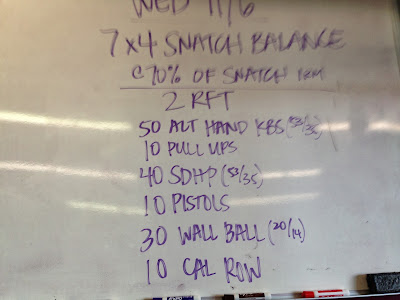 WED 11/6
7x4 SNATCH BALANCE
@70% OF SNATCH 1RM
2 RFT
50 ALT HAND KBS (53/35)
10 PULL UPS
40 SDHP (53/35)
10 PISTOLS
30 WALL BALL (20/14)
10 CAL ROW